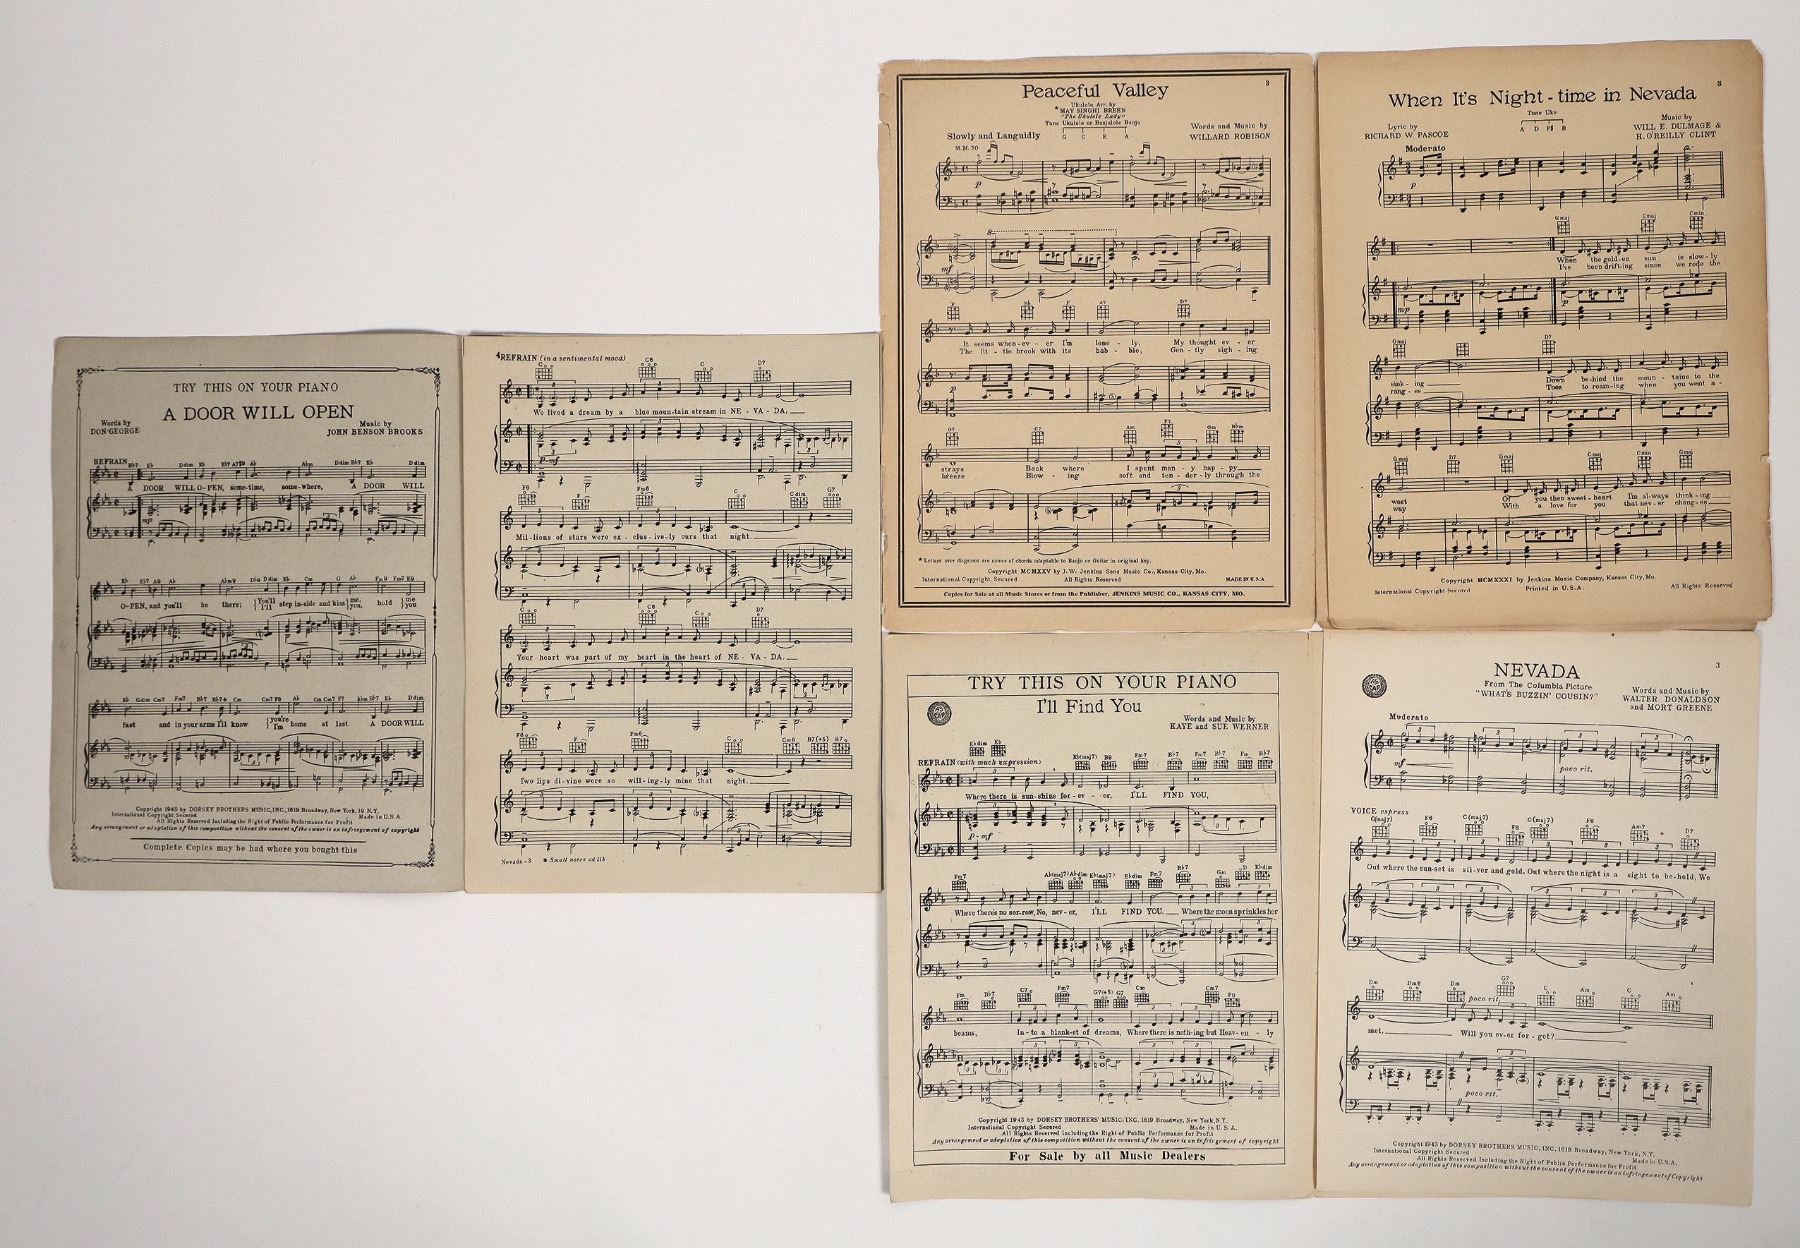 TRY THIS ON YOUR PIANO
A DOOR WILL OPEN
Words by
DON GEORGE
Music by
JOHN BENSON BROOKS
REFRAIN
A DOOR WILL O-PEN, some-time, some-where, A DOOR WILL
O-PEN, and you'll be there; {You'll I'll} step in-side and kiss {me, you,} hold {me you}
fast and in your arms I'll know {you're I'm} home at last. A DOOR WILL
Copyright 1945 by DORSEY BROTHERS MUSIC, INC., 1619 Broadway, New York, 19 N.Y.
International Copyright Secured Made in U.S.A.
All Rights Reserved Including the Right of Public Performance for Profit
Any arrangement or adaptation of this composition without the consent of the owner is an infringement of copyright
Complete Copies may be had where you bought this
4
REFRAIN (in a sentimental mood)
We lived a dream by a blue moun-tain stream in NE - VA - DA,
Mil-lions of stars were ex - clus-ive-ly ours that night.
Your heart was part of my heart in the heart of NE - VA - DA.
Two lips di-vine were so will-ing-ly mine that night.
Nevada-3 * Small notes ad lib
Peaceful Valley
3
Ukulele Arr. by
*MAY SINGHI BREEN
"The Ukulele Lady"
Tune Ukulele or Banjulele Banjo
G C E A
Slowly and Languidly
M.M. 50
Words and Music by
WILLARD ROBISON
It seems when-ev-er I'm lone-ly, My thought ev-er
The lit-tle brook with its bab-ble, Gen-tly sigh-ing
strays Back where I spent man-y hap-py
breeze Blow-ing soft and ten-der-ly through the
* Letters over diagrams are names of chords adaptable to Banjo or Guitar in original key.
Copyright MCMXXV by J.W. Jenkins Sons Music Co., Kansas City, Mo.
International Copyright Secured All Rights Reserved MADE IN U.S.A
Copies for Sale at all Music Stores or from the Publisher, JENKINS MUSIC CO., KANSAS CITY, MO.
When It's Night-time in Nevada
3
Tune Uke
A D F# B
Lyric by
RICHARD W. PASCOE
Music by
WILL E. DULMAGE &
H. O'REILLY CLINT
Moderato
When the gold-en sun is slow-ly
I've been drift-ing since we rode the
sink-ing Down be-hind the moun-tains to the
rang-es Toes to roam-ing when you went a-
west Of you then sweet-heart I'm al-ways think-ing
way With a love for you that nev-er chang-es
Copyright MCMXXXI by Jenkins Music Company, Kansas City, Mo.
International Copyright Secured Printed in U.S.A. All Rights Reserved
TRY THIS ON YOUR PIANO
I'll Find You
Words and Music by
KAYE and SUE WERNER
REFRAIN (with much expression)
Where there is sun-shine for-ev-er, I'LL FIND YOU,
Where there's no sor-row, No, nev-er, I'LL FIND YOU. Where the moon sprinkles her
beams, In-to a blank-et of dreams, Where there is noth-ing but Heav-en-ly
Copyright 1943 by DORSEY BROTHERS' MUSIC, INC. 1619 Broadway, New York, N.Y.
International Copyright Secured Made in U.S.A.
All Rights Reserved Including the Right of Public Performance for Profit
Any arrangement or adaptation of this composition without the consent of the owner is an infringement of copyright
For Sale by all Music Dealers
NEVADA
3
From The Columbia Picture
"WHAT'S BUZZIN' COUSIN?"
Words and Music by
WALTER DONALDSON
and MORT GREENE
Moderato
poco rit.
VOICE espress
Out where the sun-set is sil-ver and gold, Out where the night is a sight to be-hold, We
poco rit.
met, Will you ev-er for-get?
poco rit.
Copyright 1943 by DORSEY BROTHERS MUSIC, INC., 1619 Broadway, New York, N.Y.
International Copyright Secured Made in U.S.A.
All Rights Reserved Including the Right of Public Performance for Profit
Any arrangement or adaptation of this composition without the consent of the owner is an infringement of Copyright